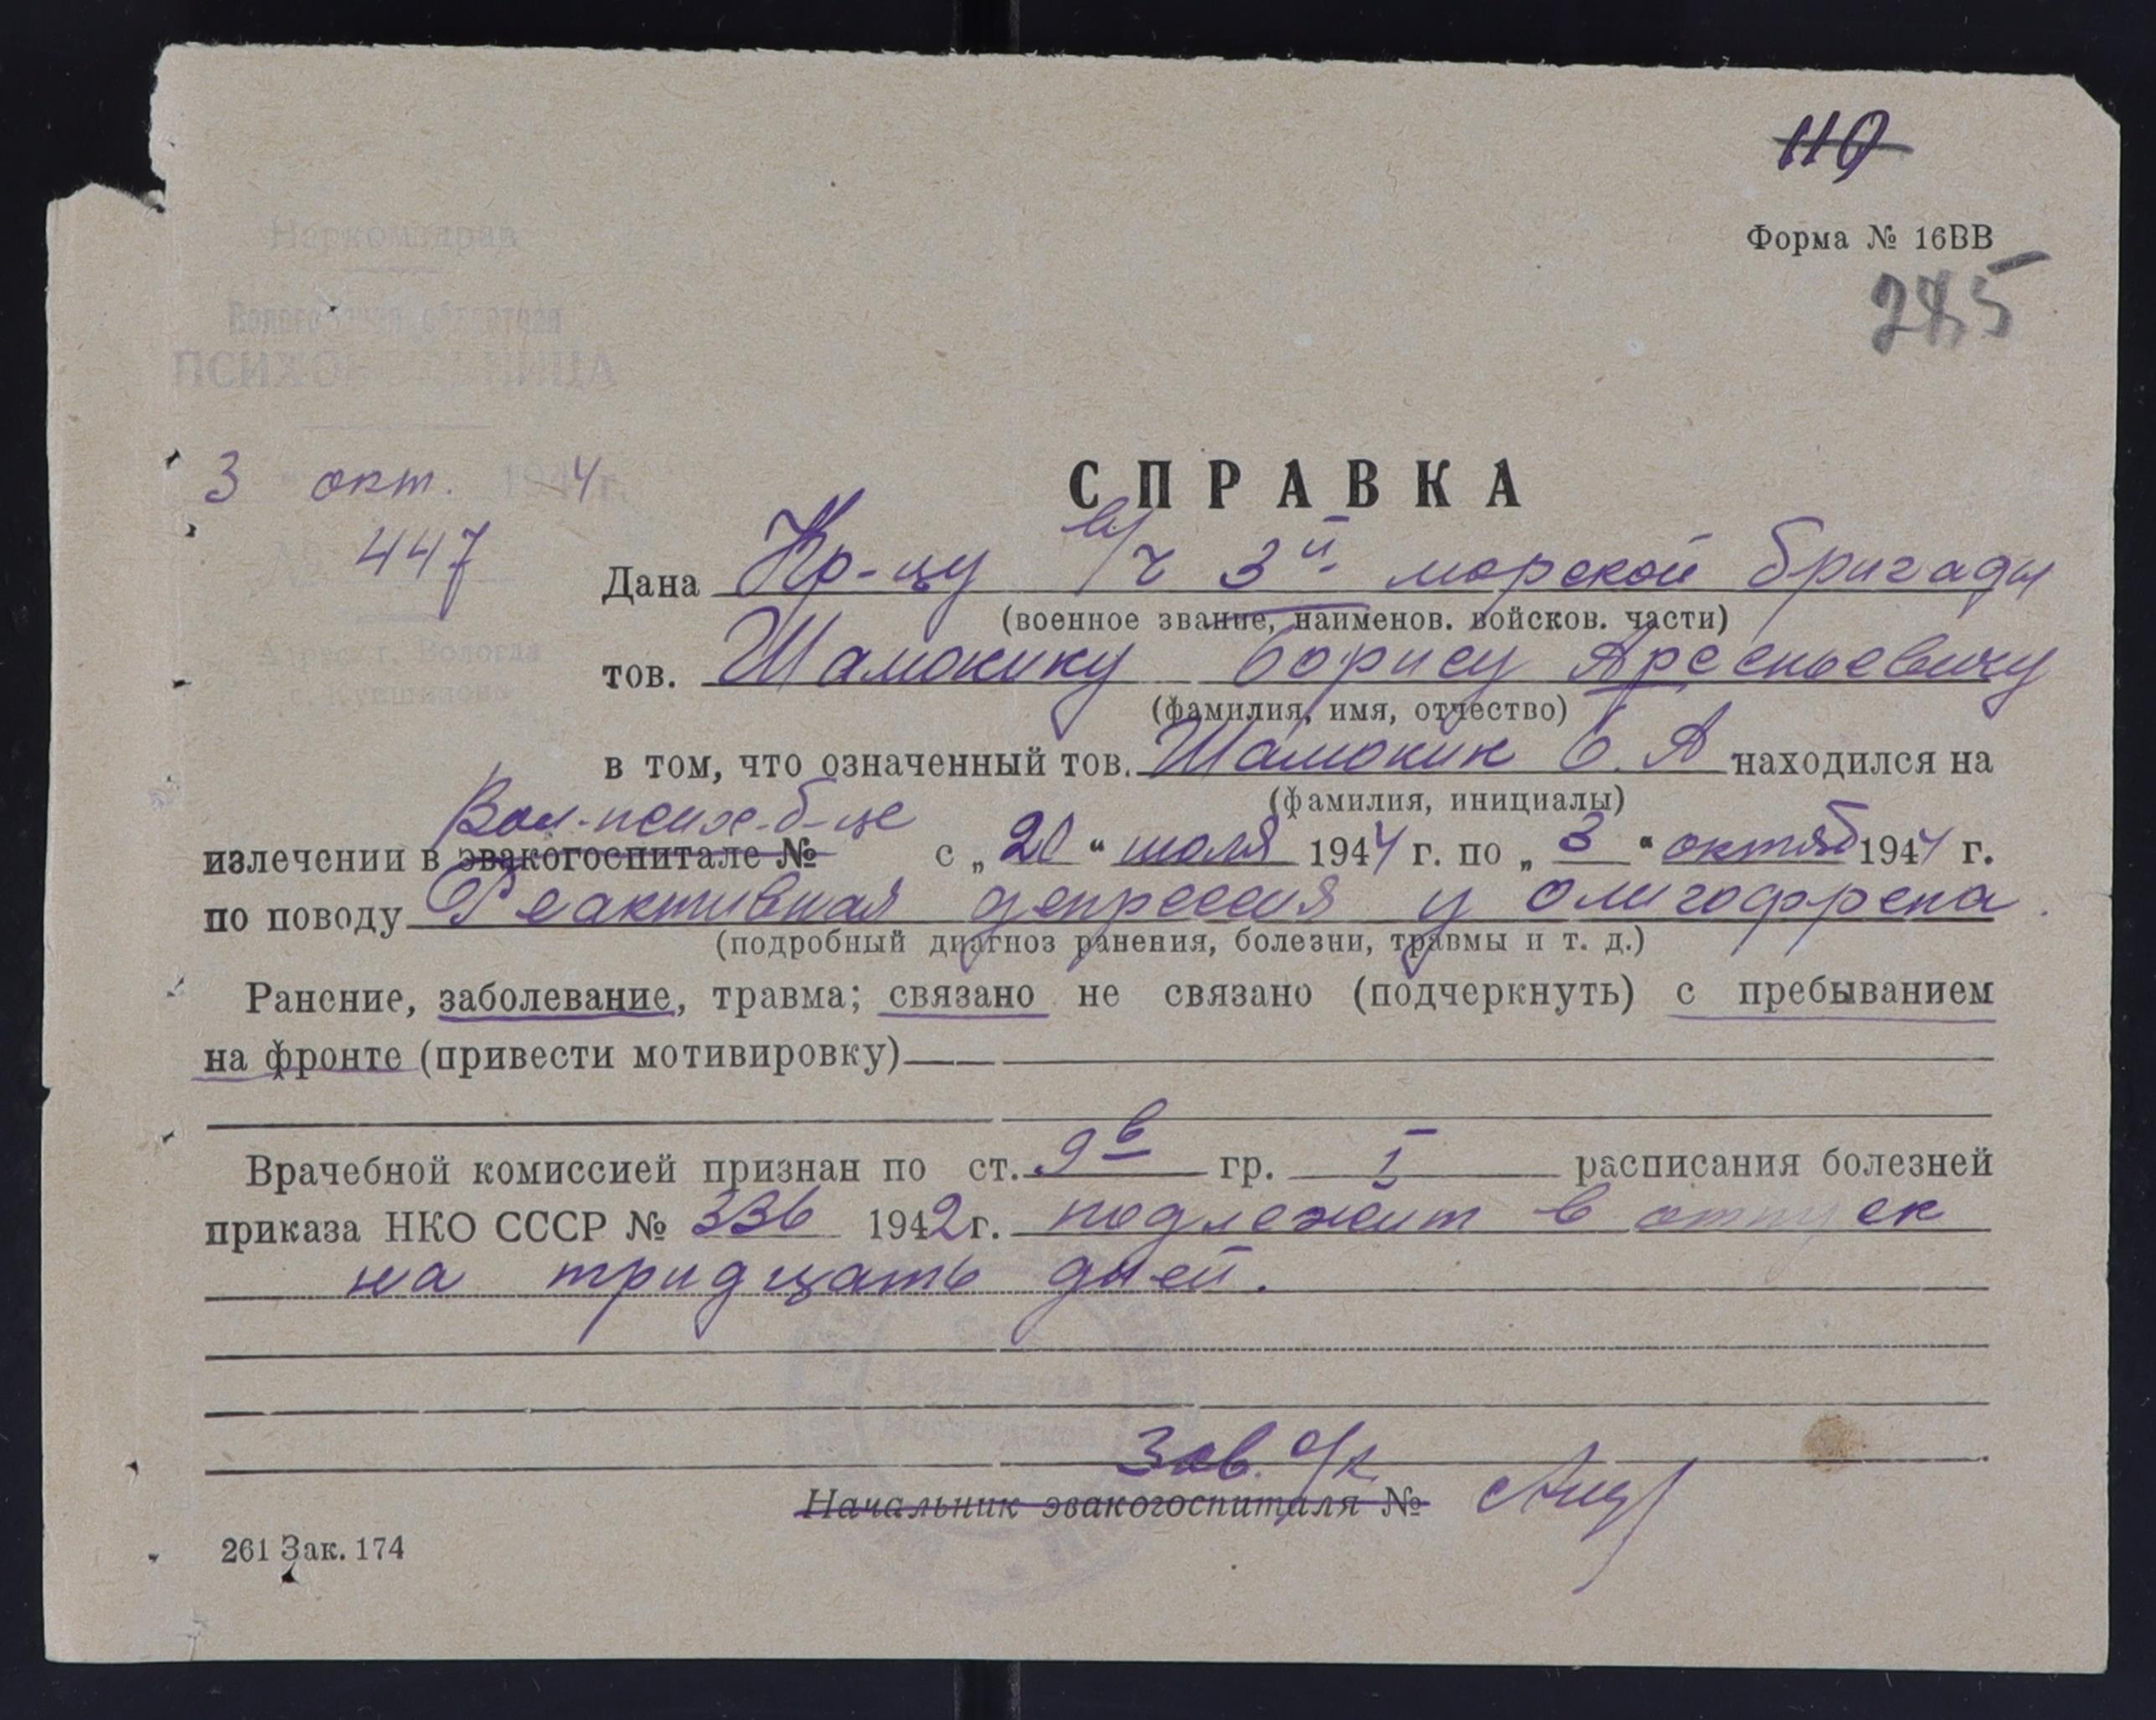 110
Форма № 16ВВ
285
Наркомздрав
Вологодская областная
ПСИХОБОЛЬНИЦА
3 окт. 1944г.
№ 447
Адрес: г. Вологда
СПРАВКА
Дана Кр-цу в/ч 3й морской бригады
(военное звание, наименов. войсков. части)
тов. Шамокину Борису Арсеньевичу
(фамилия, имя, отчество)
в том, что означенный тов. Шамокин Б. А находился на
(фамилия, инициалы)
Вол-псих-б-це
излечении в эвакогоспитале № с „20“ июля 1944 г. по „3“ октяб 1944 г.
по поводу Реактивная депрессия у олигофрена.
(подробный диагноз ранения, болезни, травмы и т. д.)
Ранение, заболевание, травма; связано не связано (подчеркнуть) с пребыванием
на фронте (привести мотивировку)
Врачебной комиссией признан по ст. 9в гр. I расписания болезней
приказа НКО СССР № 336 1942г. подлежит в отпуск
на тридцать дней.
Зав.
Начальник эвакогоспиталя №
261 Зак. 174